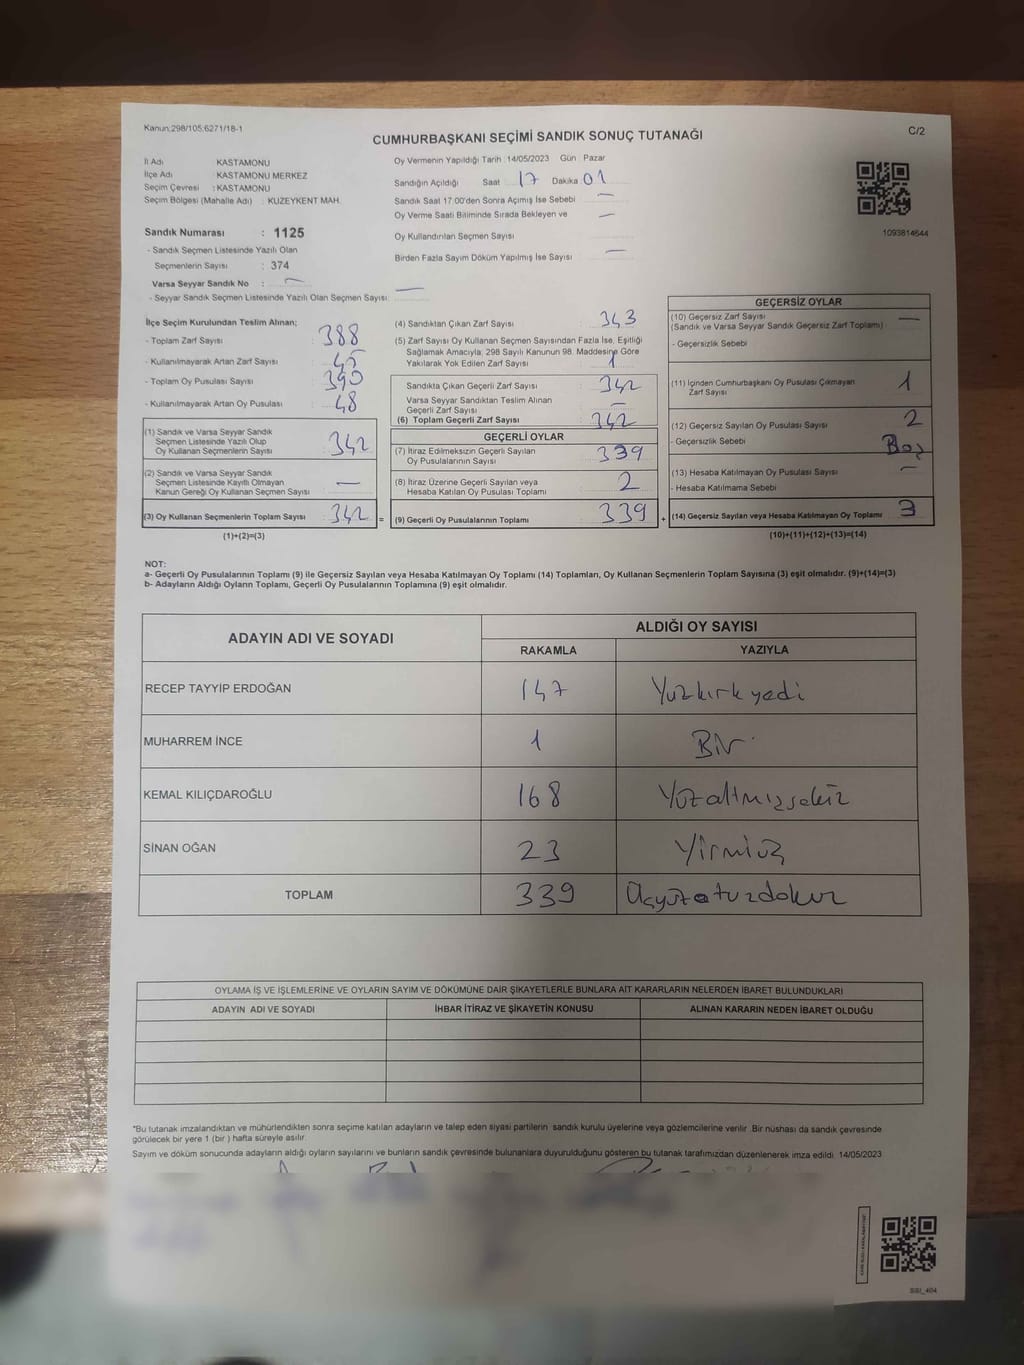 Kanun;298/105;6271/18-1
C/2
CUMHURBAŞKANI SEÇİMİ SANDIK SONUÇ TUTANAĞI
İl Adı KASTAMONU
İlçe Adı KASTAMONU MERKEZ
Seçim Çevresi : KASTAMONU
Seçim Bölgesi (Mahalle Adı) : KUZEYKENT MAH.
Sandık Numarası : 1125
- Sandık Seçmen Listesinde Yazılı Olan
Seçmenlerin Sayısı : 374
Varsa Seyyar Sandık No : —
- Seyyar Sandık Seçmen Listesinde Yazılı Olan Seçmen Sayısı: —
Oy Vermenin Yapıldığı Tarih :14/05/2023 Gün Pazar
Sandığın Açıldığı Saat 17 Dakika 01
Sandık Saat 17:00'den Sonra Açımış İse Sebebi —
Oy Verme Saati Bitiminde Sırada Bekleyen ve —
Oy Kullandırılan Seçmen Sayısı
Birden Fazla Sayım Döküm Yapılmış İse Sayısı —
1093814644
İlçe Seçim Kurulundan Teslim Alınan;
- Toplam Zarf Sayısı : 388
- Kullanılmayarak Artan Zarf Sayısı : 45
- Toplam Oy Pusulası Sayısı : 390
- Kullanılmayarak Artan Oy Pusulası : 48
(1) Sandık ve Varsa Seyyar Sandık
Seçmen Listesinde Yazılı Olup
Oy Kullanan Seçmenlerin Sayısı : 342
(2) Sandık ve Varsa Seyyar Sandık
Seçmen Listesinde Kayıtlı Olmayan
Kanun Gereği Oy Kullanan Seçmen Sayısı : —
(3) Oy Kullanan Seçmenlerin Toplam Sayısı : 342
(1)+(2)=(3)
=
(4) Sandıktan Çıkan Zarf Sayısı : 343
(5) Zarf Sayısı Oy Kullanan Seçmen Sayısından Fazla İse, Eşitliği
Sağlamak Amacıyla, 298 Sayılı Kanunun 98. Maddesine Göre
Yakılarak Yok Edilen Zarf Sayısı : 1
Sandıkta Çıkan Geçerli Zarf Sayısı : 342
Varsa Seyyar Sandıktan Teslim Alınan
Geçerli Zarf Sayısı : —
(6) Toplam Geçerli Zarf Sayısı : 342
GEÇERLİ OYLAR
(7) İtiraz Edilmeksizin Geçerli Sayılan
Oy Pusulalarının Sayısı : 339
(8) İtiraz Üzerine Geçerli Sayılan veya
Hesaba Katılan Oy Pusulası Toplamı : 2
(9) Geçerli Oy Pusulalarının Toplamı : 339
+
GEÇERSİZ OYLAR
(10) Geçersiz Zarf Sayısı —
(Sandık ve Varsa Seyyar Sandık Geçersiz Zarf Toplamı)
- Geçersizlik Sebebi
(11) İçinden Cumhurbaşkanı Oy Pusulası Çıkmayan
Zarf Sayısı 1
(12) Geçersiz Sayılan Oy Pusulası Sayısı 2
- Geçersizlik Sebebi Boş
(13) Hesaba Katılmayan Oy Pusulası Sayısı —
- Hesaba Katılmama Sebebi
(14) Geçersiz Sayılan veya Hesaba Katılmayan Oy Toplamı 3
(10)+(11)+(12)+(13)=(14)
NOT:
a- Geçerli Oy Pusulalarının Toplamı (9) ile Geçersiz Sayılan veya Hesaba Katılmayan Oy Toplamı (14) Toplamları, Oy Kullanan Seçmenlerin Toplam Sayısına (3) eşit olmalıdır. (9)+(14)=(3)
b- Adayların Aldığı Oyların Toplamı, Geçerli Oy Pusulalarının Toplamına (9) eşit olmalıdır.
ADAYIN ADI VE SOYADI
ALDIĞI OY SAYISI
RAKAMLA YAZIYLA
RECEP TAYYİP ERDOĞAN 147 Yüzkırkyedi
MUHARREM İNCE 1 Bir
KEMAL KILIÇDAROĞLU 168 Yüzaltmışsekiz
SİNAN OĞAN 23 Yirmiüç
TOPLAM 339 Üçyüzotuzdokuz
OYLAMA İŞ VE İŞLEMLERİNE VE OYLARIN SAYIM VE DÖKÜMÜNE DAİR ŞİKAYETLERLE BUNLARA AİT KARARLARIN NELERDEN İBARET BULUNDUKLARI
ADAYIN ADI VE SOYADI İHBAR İTİRAZ VE ŞİKAYETİN KONUSU ALINAN KARARIN NEDEN İBARET OLDUĞU
*Bu tutanak imzalandıktan ve mühürlendikten sonra seçime katılan adayların ve talep eden siyasi partilerin sandık kurulu üyelerine veya gözlemcilerine verilir. Bir nüshası da sandık çevresinde
görülecek bir yere 1 (bir ) hafta süreyle asılır.
Sayım ve döküm sonucunda adayların aldığı oyların sayılarını ve bunların sandık çevresinde bulunanlara duyurulduğunu gösteren bu tutanak tarafımızdan düzenlenerek imza edildi. 14/05/2023
SSI_404